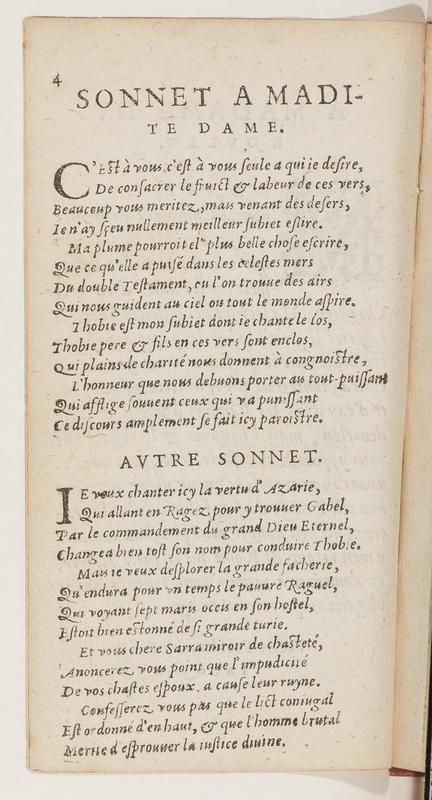 4
SONNET A MADI-
TE DAME.
C'Est à vous, c'est à vous seule a qui ie desire,
De consacrer le fruict & labeur de ces vers,
Beaucoup vous meritez, mais venant des desers,
Ie n'ay sçeu nullement meilleur subiet eslire.
Ma plume pourroit el' plus belle chose escrire,
Que ce qu'elle a puisé dans les celestes mers
Du double Testament, ou l'on trouue des airs
Qui nous guident au ciel ou tout le monde aspire.
Thobie est mon subiet dont ie chante le los,
Thobie pere & fils en ces vers sont enclos,
Qui plains de charité nous donnent à congnoistre,
L'honneur que nous debuons porter au tout-puissant
Qui afflige souuent ceux qui va punissant
Ce discours amplement se fait icy paroistre.
AVTRE SONNET.
IE veux chanter icy la vertu d'Azarie,
Qui allant en Ragez pour y trouuer Gabel,
Par le commandement du grand Dieu Eternel,
Changea bien tost son nom pour conduire Thobie.
Mais ie veux desplorer la grande facherie,
Qu'endura pour vn temps le pauure Raguel,
Qui voyant sept maris occis en son hostel,
Estoit bien estonné de si grande turie.
Et vous chere Sarra miroir de chasteté,
Anoncerez vous point que l'impudicité
De vos chastes espoux, a cause leur ruyne.
Confesserez vous pas que le lict coniugal
Est ordonné d'en haut, & que l'homme brutal
Merite d'esprouuer la iustice diuine.